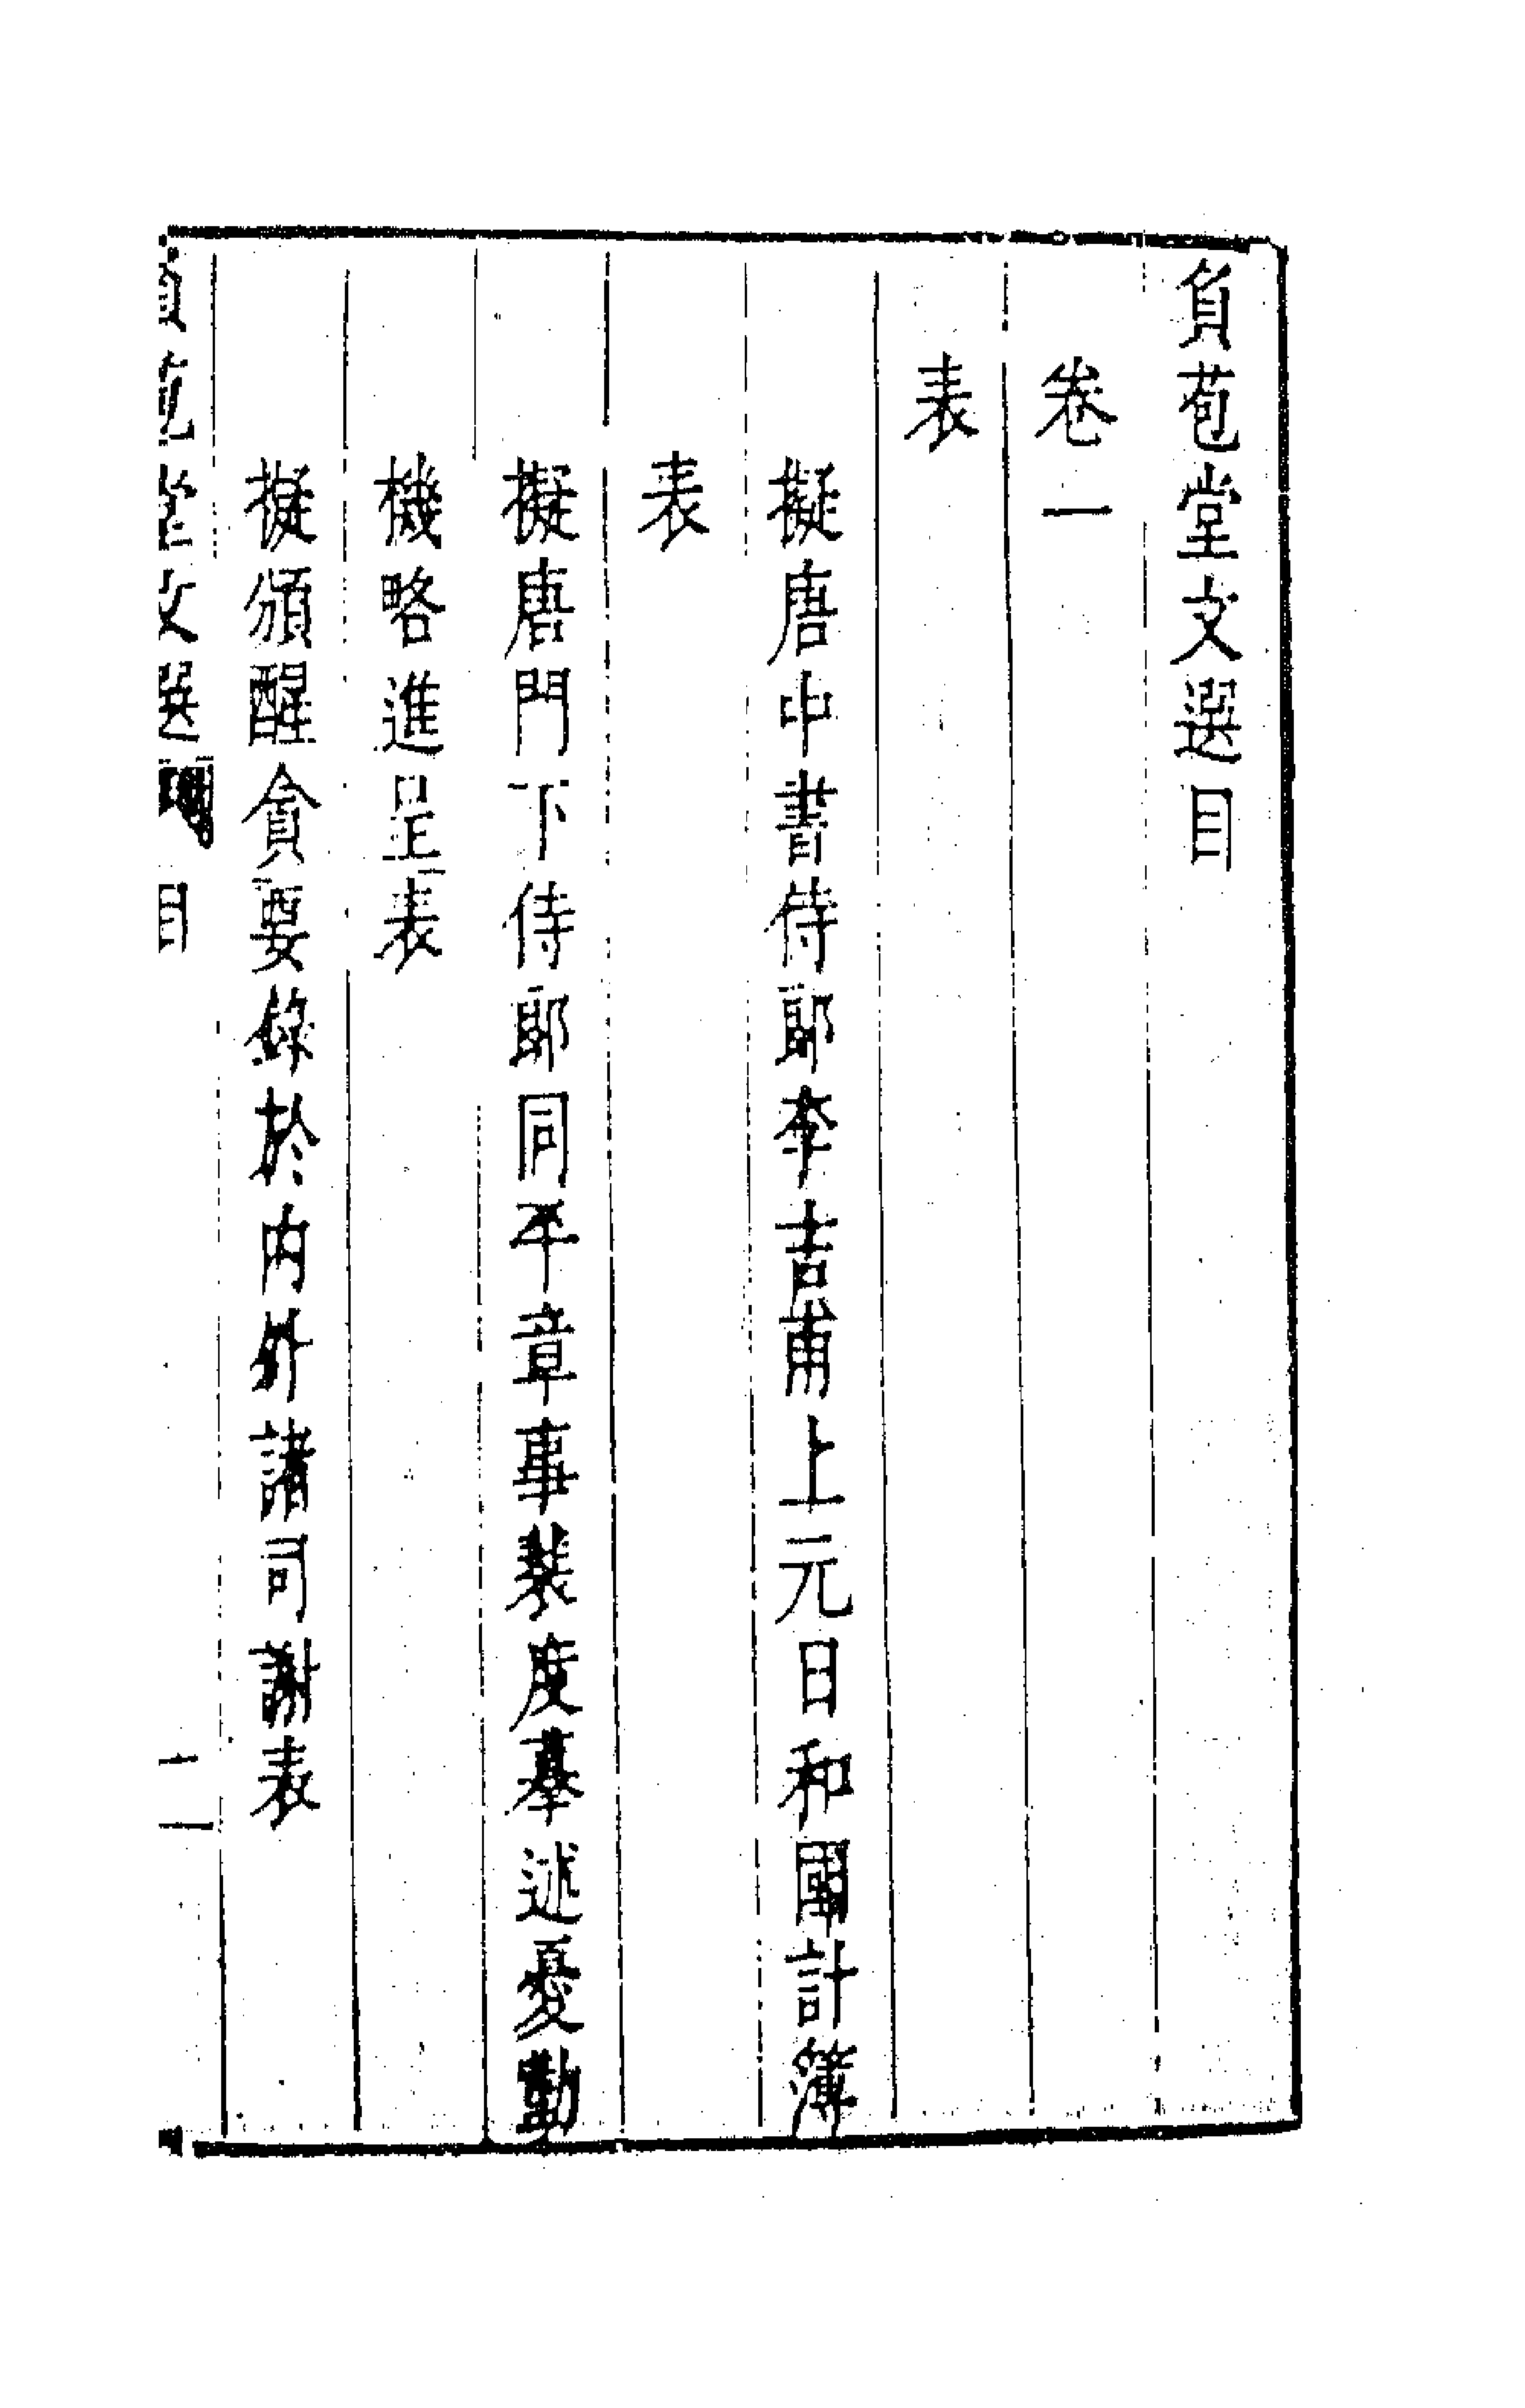 負苞堂文選目
卷一
表
擬唐中書侍郎李吉甫上元日和國計簿
表
擬唐門下侍郎同平章事裴度摹述憂勤
機略進呈表
擬頒醒貪要錄於內外諸司謝表
負苞堂文選 目 一